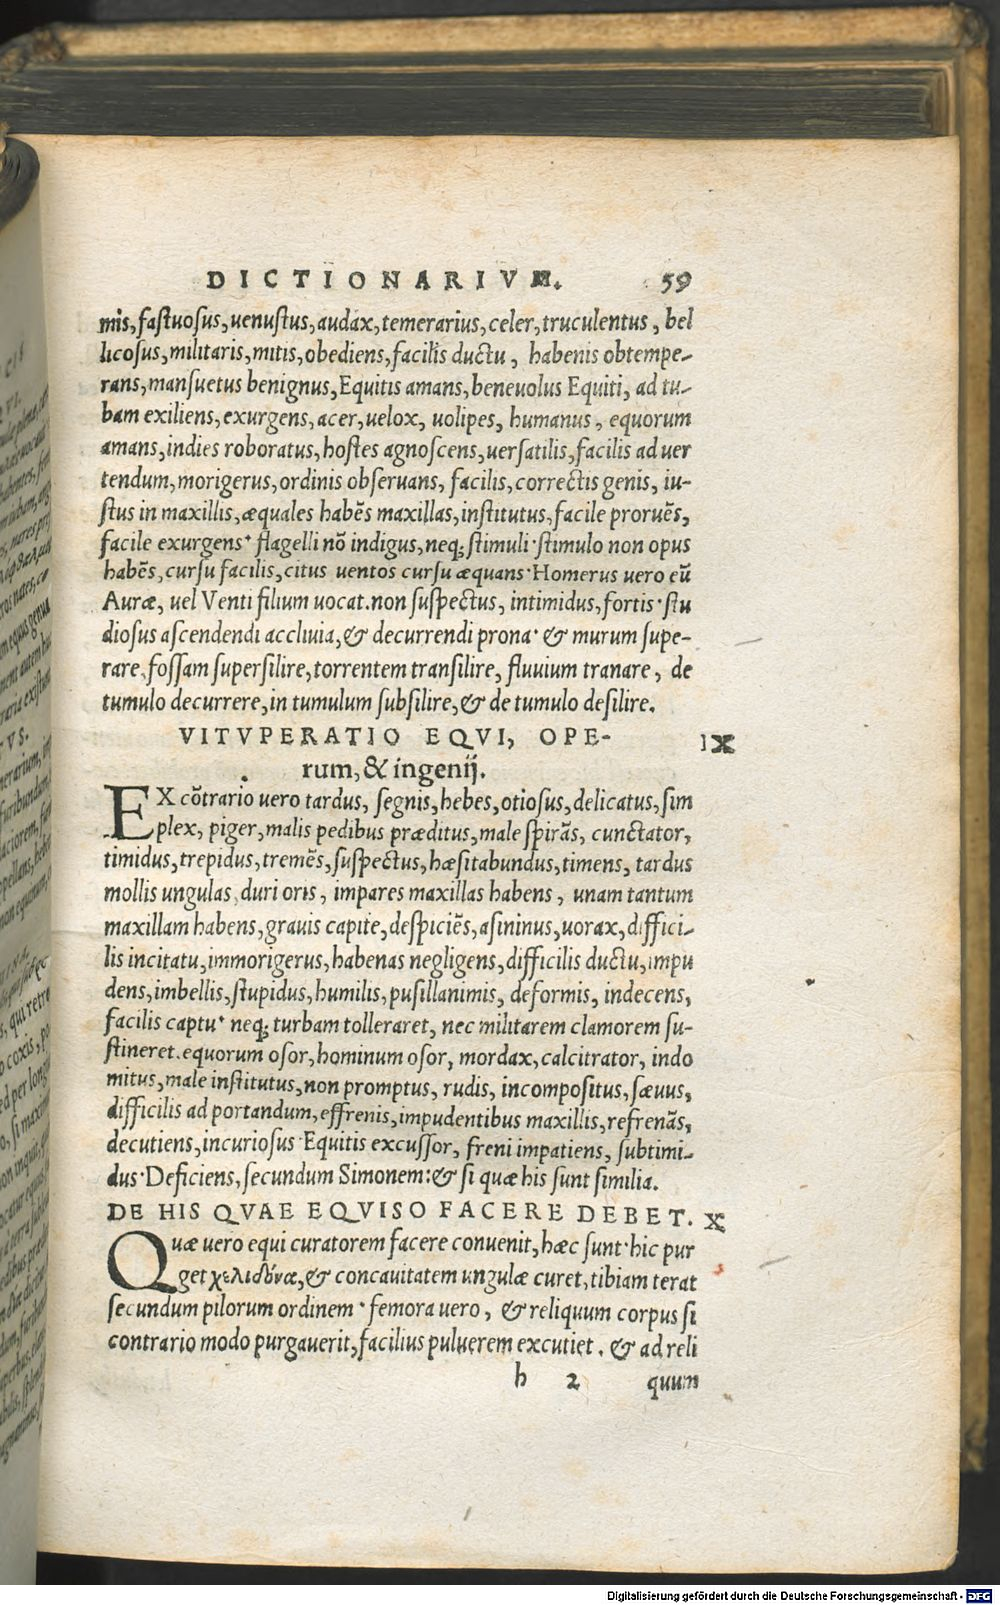 DICTIONARIVM. 59
mis, fastuosus, uenustus, audax, temerarius, celer, truculentus, bel
licosus, militaris, mitis, obediens, facilis ductu, habenis obtempe-
rans, mansuetus benignus, Equitis amans, beneuolus Equiti, ad tu-
bam exiliens, exurgens, acer, uelox, uolipes, humanus, equorum
amans, indies roboratus, hostes agnoscens, uersatilis, facilis ad uer
tendum, morigerus, ordinis obseruans, facilis, correctis genis, iu-
stus in maxillis, æquales habẽs maxillas, institutus, facile proruẽs,
facile exurgens· flagelli nõ indigus, neq; stimuli· stimulo non opus
habẽs, cursu facilis, citus uentos cursu æquans· Homerus uero eũ
Auræ, uel Venti filium uocat. non suspectus, intimidus, fortis· stu
diosus ascendendi accliuia, & decurrendi prona· & murum supe-
rare, fossam supersilire, torrentem transilire, fluuium tranare, de
tumulo decurrere, in tumulum subsilire, & de tumulo desilire.
VITVPERATIO EQVI, OPE- IX
rum, & ingenij.
EX cõtrario uero tardus, segnis, hebes, otiosus, delicatus, sim
plex, piger, malis pedibus præditus, male spirãs, cunctator,
timidus, trepidus, tremẽs, suspectus, hæsitabundus, timens, tardus
mollis ungulas, duri oris, impares maxillas habens, unam tantum
maxillam habens, grauis capite, despiciẽs, asininus, uorax, diffici-
lis incitatu, immorigerus, habenas negligens, difficilis ductu, impu
dens, imbellis, stupidus, humilis, pusillanimis, deformis, indecens,
facilis captu· neq; turbam tolleraret, nec militarem clamorem su-
stineret. equorum osor, hominum osor, mordax, calcitrator, indo
mitus, male institutus, non promptus, rudis, incompositus, sæuus,
difficilis ad portandum, effrenis, impudentibus maxillis, refrenãs,
decutiens, incuriosus· Equitis excussor, freni impatiens, subtimi-
dus· Deficiens, secundum Simonem: & si quæ his sunt similia.
DE HIS QVAE EQVISO FACERE DEBET. X
Quæ uero equi curatorem facere conuenit, hæc sunt· hic pur
get χελιδόνας, & concauitatem ungulæ curet, tibiam terat
secundum pilorum ordinem· femora uero, & reliquum corpus si
contrario modo purgauerit, facilius puluerem excutiet. & ad reli
h 2 quum
Digitalisierung gefördert durch die Deutsche Forschungsgemeinschaft - DFG